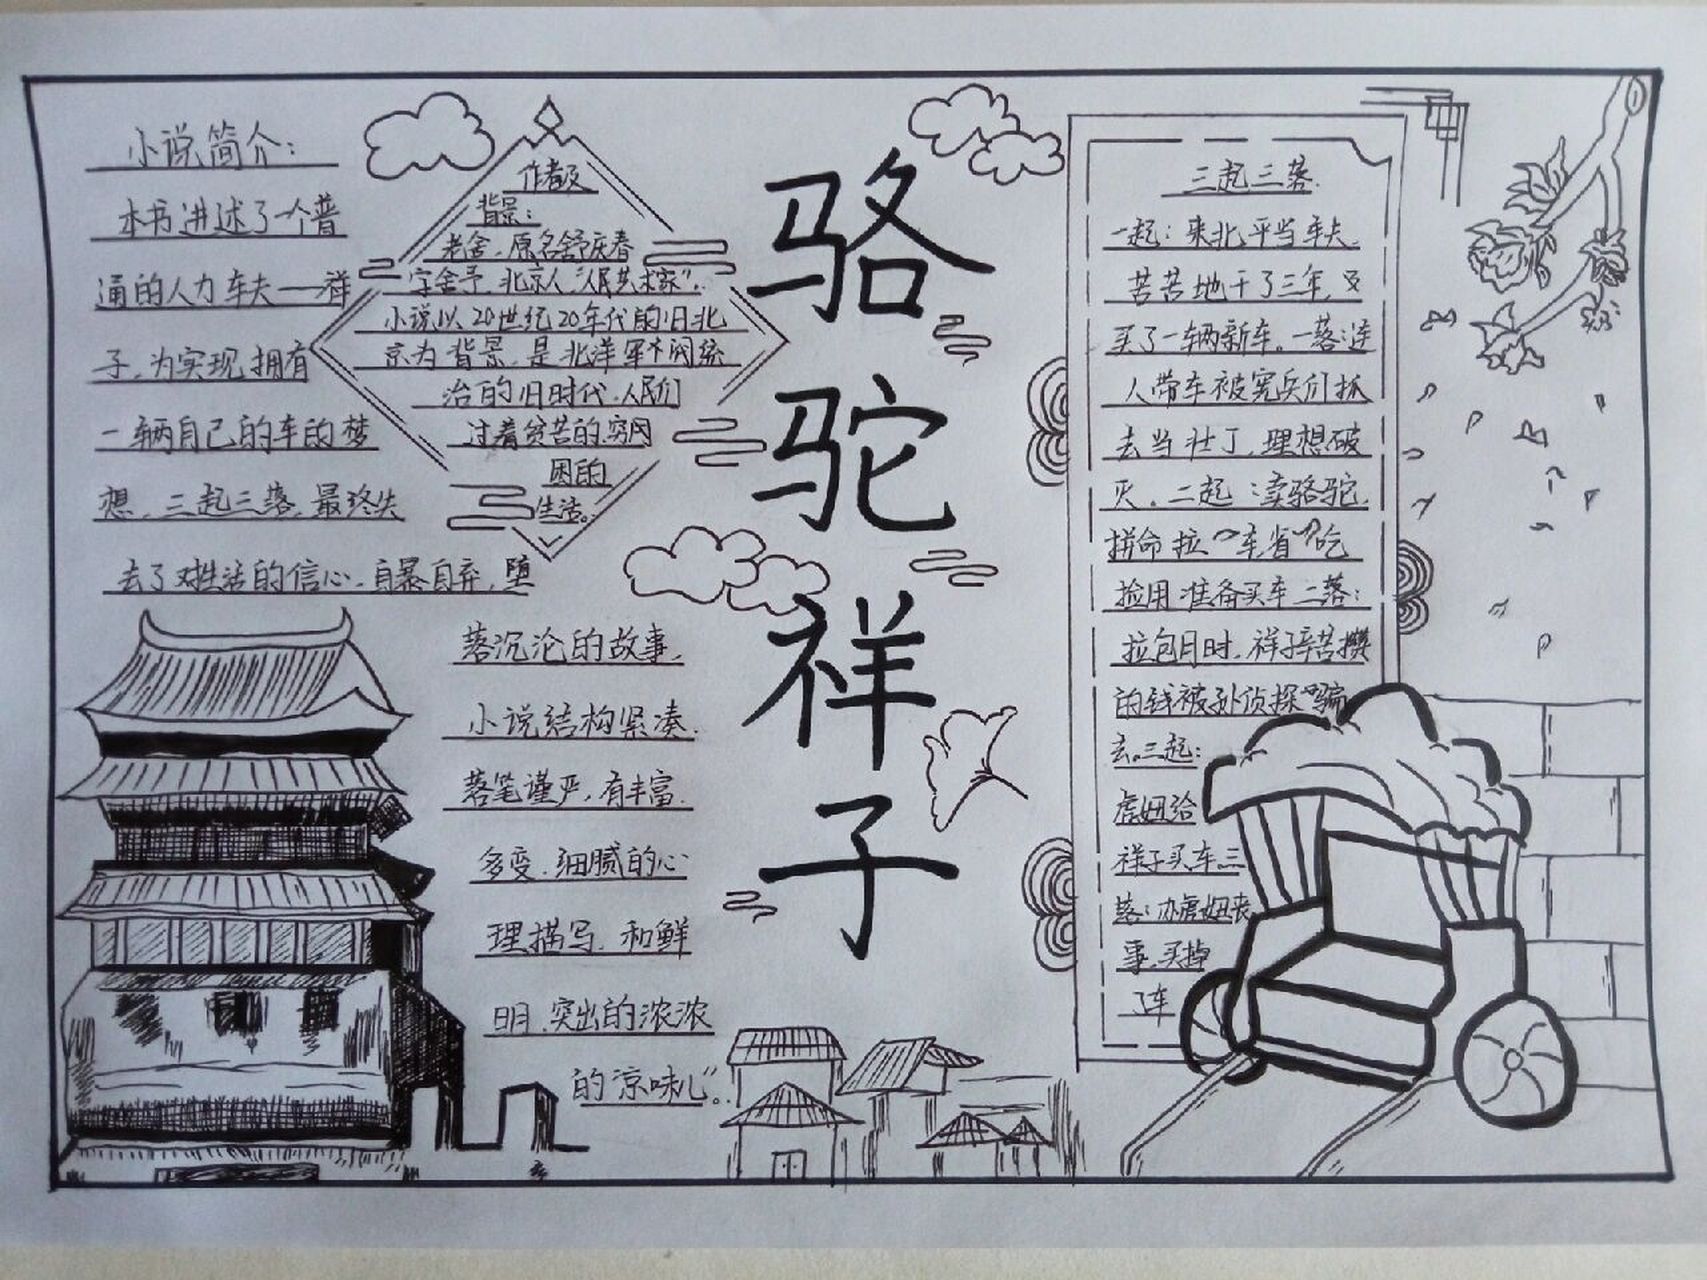 小说简介：
本书进述了一个普
通的人力车夫一祥
子，为实现拥有
一辆自己的车的梦
想，三起三落，最终失
去了对生活的信心，自暴自弃，堕
落沉沦的故事，
小说结构紧凑，
落笔谨严，有丰富
多变、细腻的心
理描写，和鲜
明、突出的浓浓
的“凉味儿”。
作者及
背景：
老舍，原名舒庆春
字舍予，北京人“人民艺术家”，
小说以20世纪20年代的旧北
京为背景，是北洋军阀统
治的旧时代，人民们
过着贫苦的，穷
困的
生活。
骆
驼
祥
子
三起三落
一起：来北平当车夫，
苦苦地干了三年，又
买了一辆新车。一落：连
人带车被宪兵们抓
去当壮丁，理想破
灭。二起：卖骆驼，
拼命拉车省吃
捡用准备买车二落：
拉包月时，祥子辛苦攒
的钱被孙侦探骗
去。三起：
虎妞给
祥子买车三
落：办虎妞丧
事，买掉
了车